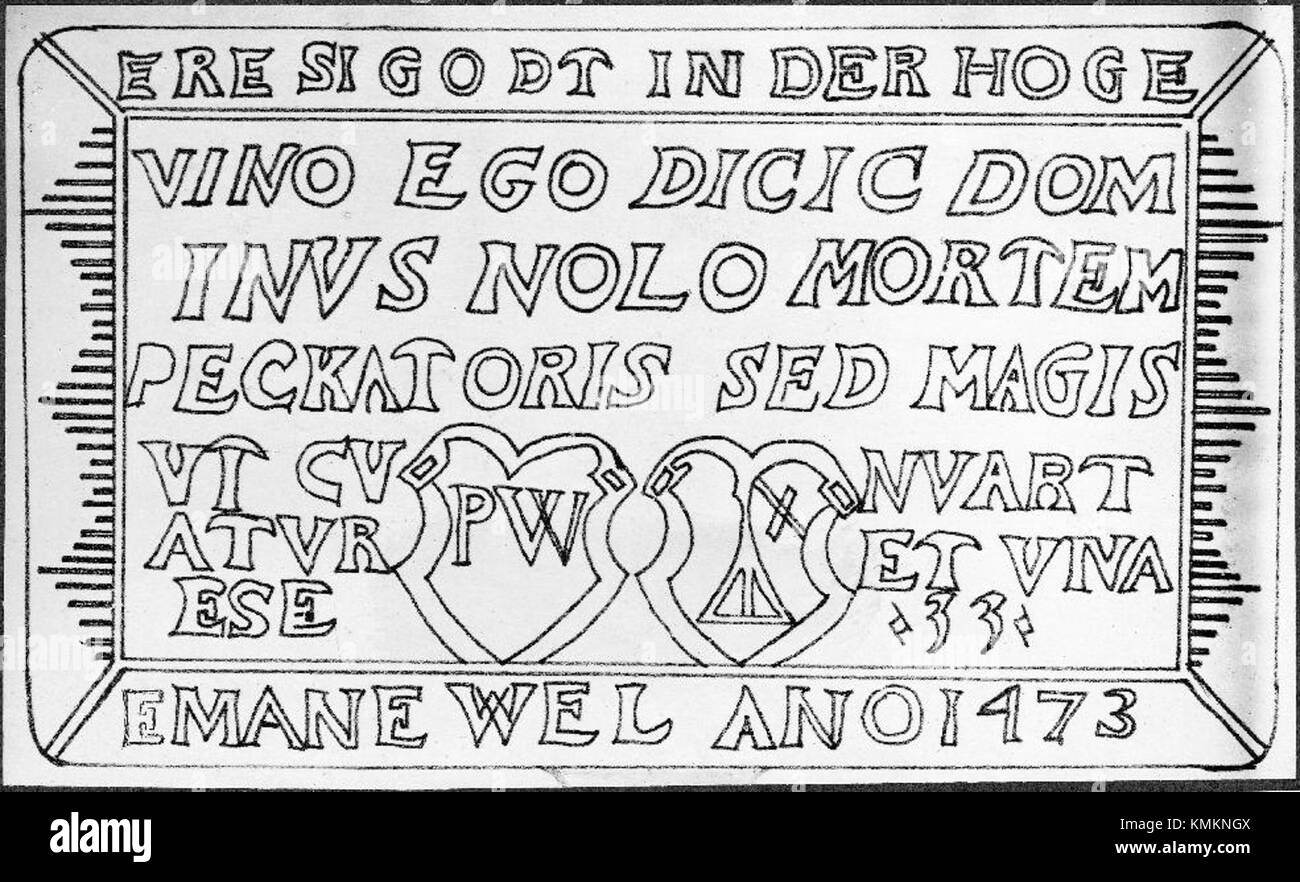 ERE SI GODT IN DER HOGE
VINO EGO DICIC DOM
INVS NOLO MORTEM
PECKATORIS SED MAGIS
VT CV NVART
ATVR PW ET VIVA
ESE 33
EMANEWEL ANO 1473
alamy
Image ID: KMKNGX
www.alamy.com